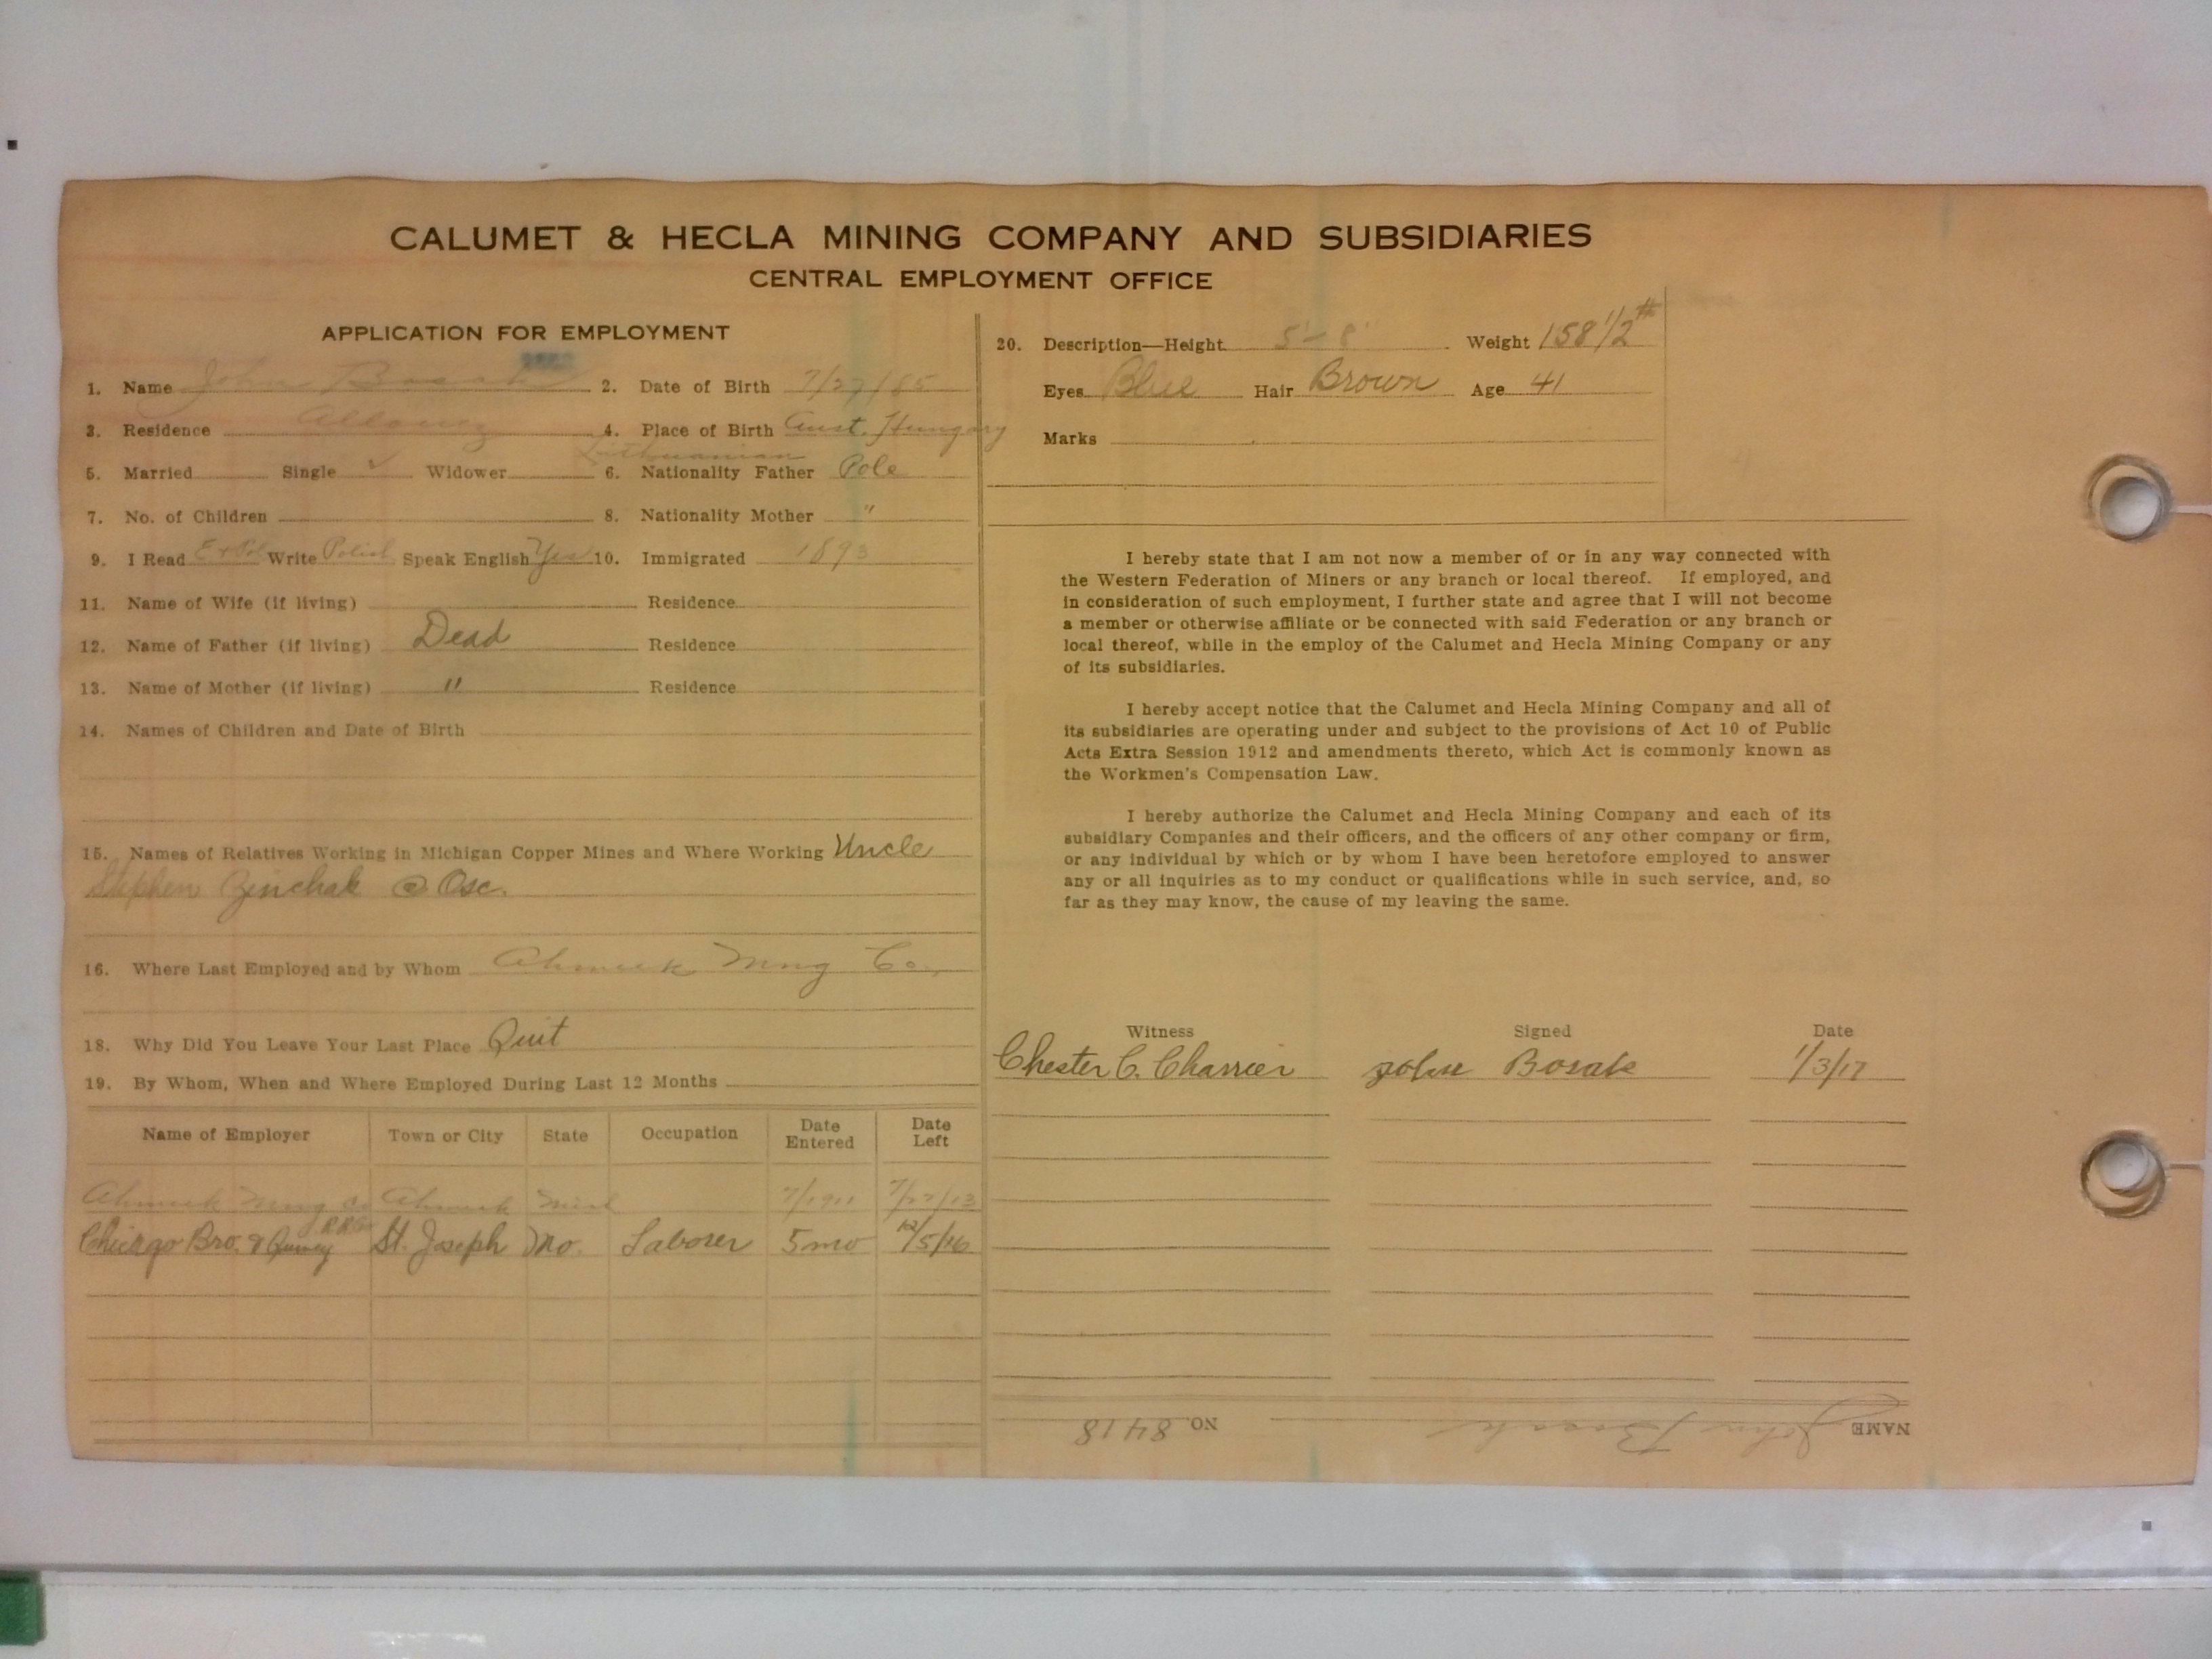 CALUMET & HECLA MINING COMPANY AND SUBSIDIARIES
CENTRAL EMPLOYMENT OFFICE
APPLICATION FOR EMPLOYMENT
1. Name John Bosak 2. Date of Birth 7/27/85
3. Residence Allouez 4. Place of Birth Aust. Hungary
Lithuanian
5. Married Single ✓ Widower 6. Nationality Father Pole
7. No. of Children 8. Nationality Mother "
9. I Read E & Pol Write Polish Speak English Yes 10. Immigrated 1893
11. Name of Wife (if living) Residence
12. Name of Father (if living) Dead Residence
13. Name of Mother (if living) " Residence
14. Names of Children and Date of Birth
15. Names of Relatives Working in Michigan Copper Mines and Where Working Uncle
Stephen Zinchak @ Osc.
16. Where Last Employed and by Whom Ahmeek Mng Co.
18. Why Did You Leave Your Last Place Quit
19. By Whom, When and Where Employed During Last 12 Months
Name of Employer Town or City State Occupation Date Entered Date Left
Ahmeek Mng Co Ahmeek Mich 7/1911 7/27/13
Chicago Bro. & Quincy R.R. Co St. Joseph Mo. Laborer 5 mo 12/5/16
20. Description—Height 5'-8" Weight 158 1/2 #
Eyes Blue Hair Brown Age 41
Marks
I hereby state that I am not now a member of or in any way connected with
the Western Federation of Miners or any branch or local thereof. If employed, and
in consideration of such employment, I further state and agree that I will not become
a member or otherwise affiliate or be connected with said Federation or any branch or
local thereof, while in the employ of the Calumet and Hecla Mining Company or any
of its subsidiaries.
I hereby accept notice that the Calumet and Hecla Mining Company and all of
its subsidiaries are operating under and subject to the provisions of Act 10 of Public
Acts Extra Session 1912 and amendments thereto, which Act is commonly known as
the Workmen's Compensation Law.
I hereby authorize the Calumet and Hecla Mining Company and each of its
subsidiary Companies and their officers, and the officers of any other company or firm,
or any individual by which or by whom I have been heretofore employed to answer
any or all inquiries as to my conduct or qualifications while in such service, and, so
far as they may know, the cause of my leaving the same.
Witness Signed Date
Chester C. Charrier John Bosak 1/3/17
NAME John Bosak NO. 8418